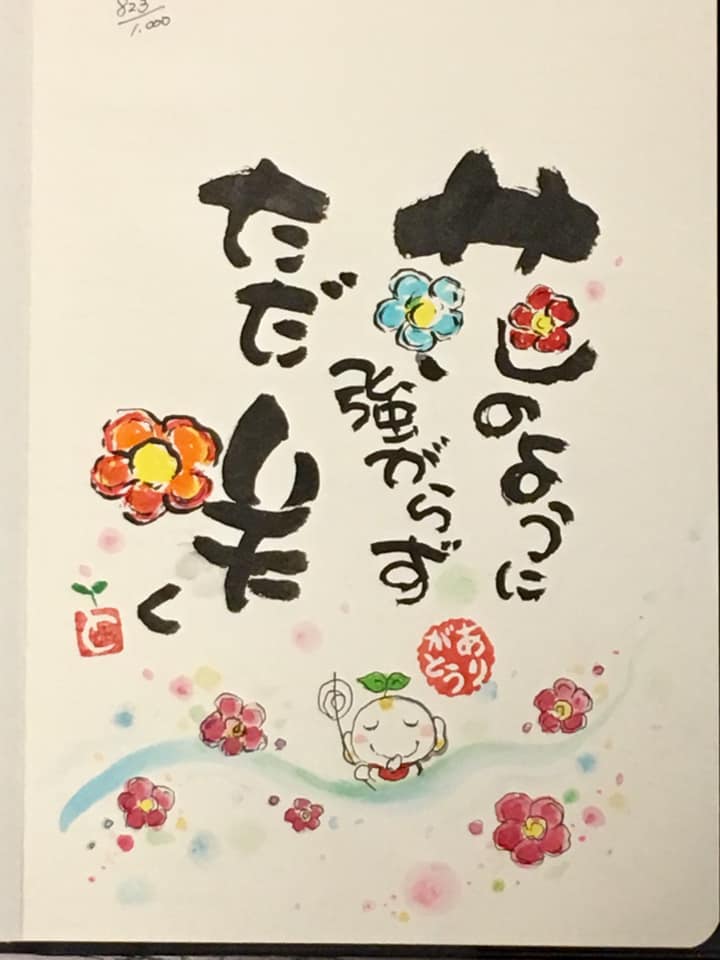 823
1.000
花のように
強がらず
ただ
咲く
ありがとう
と